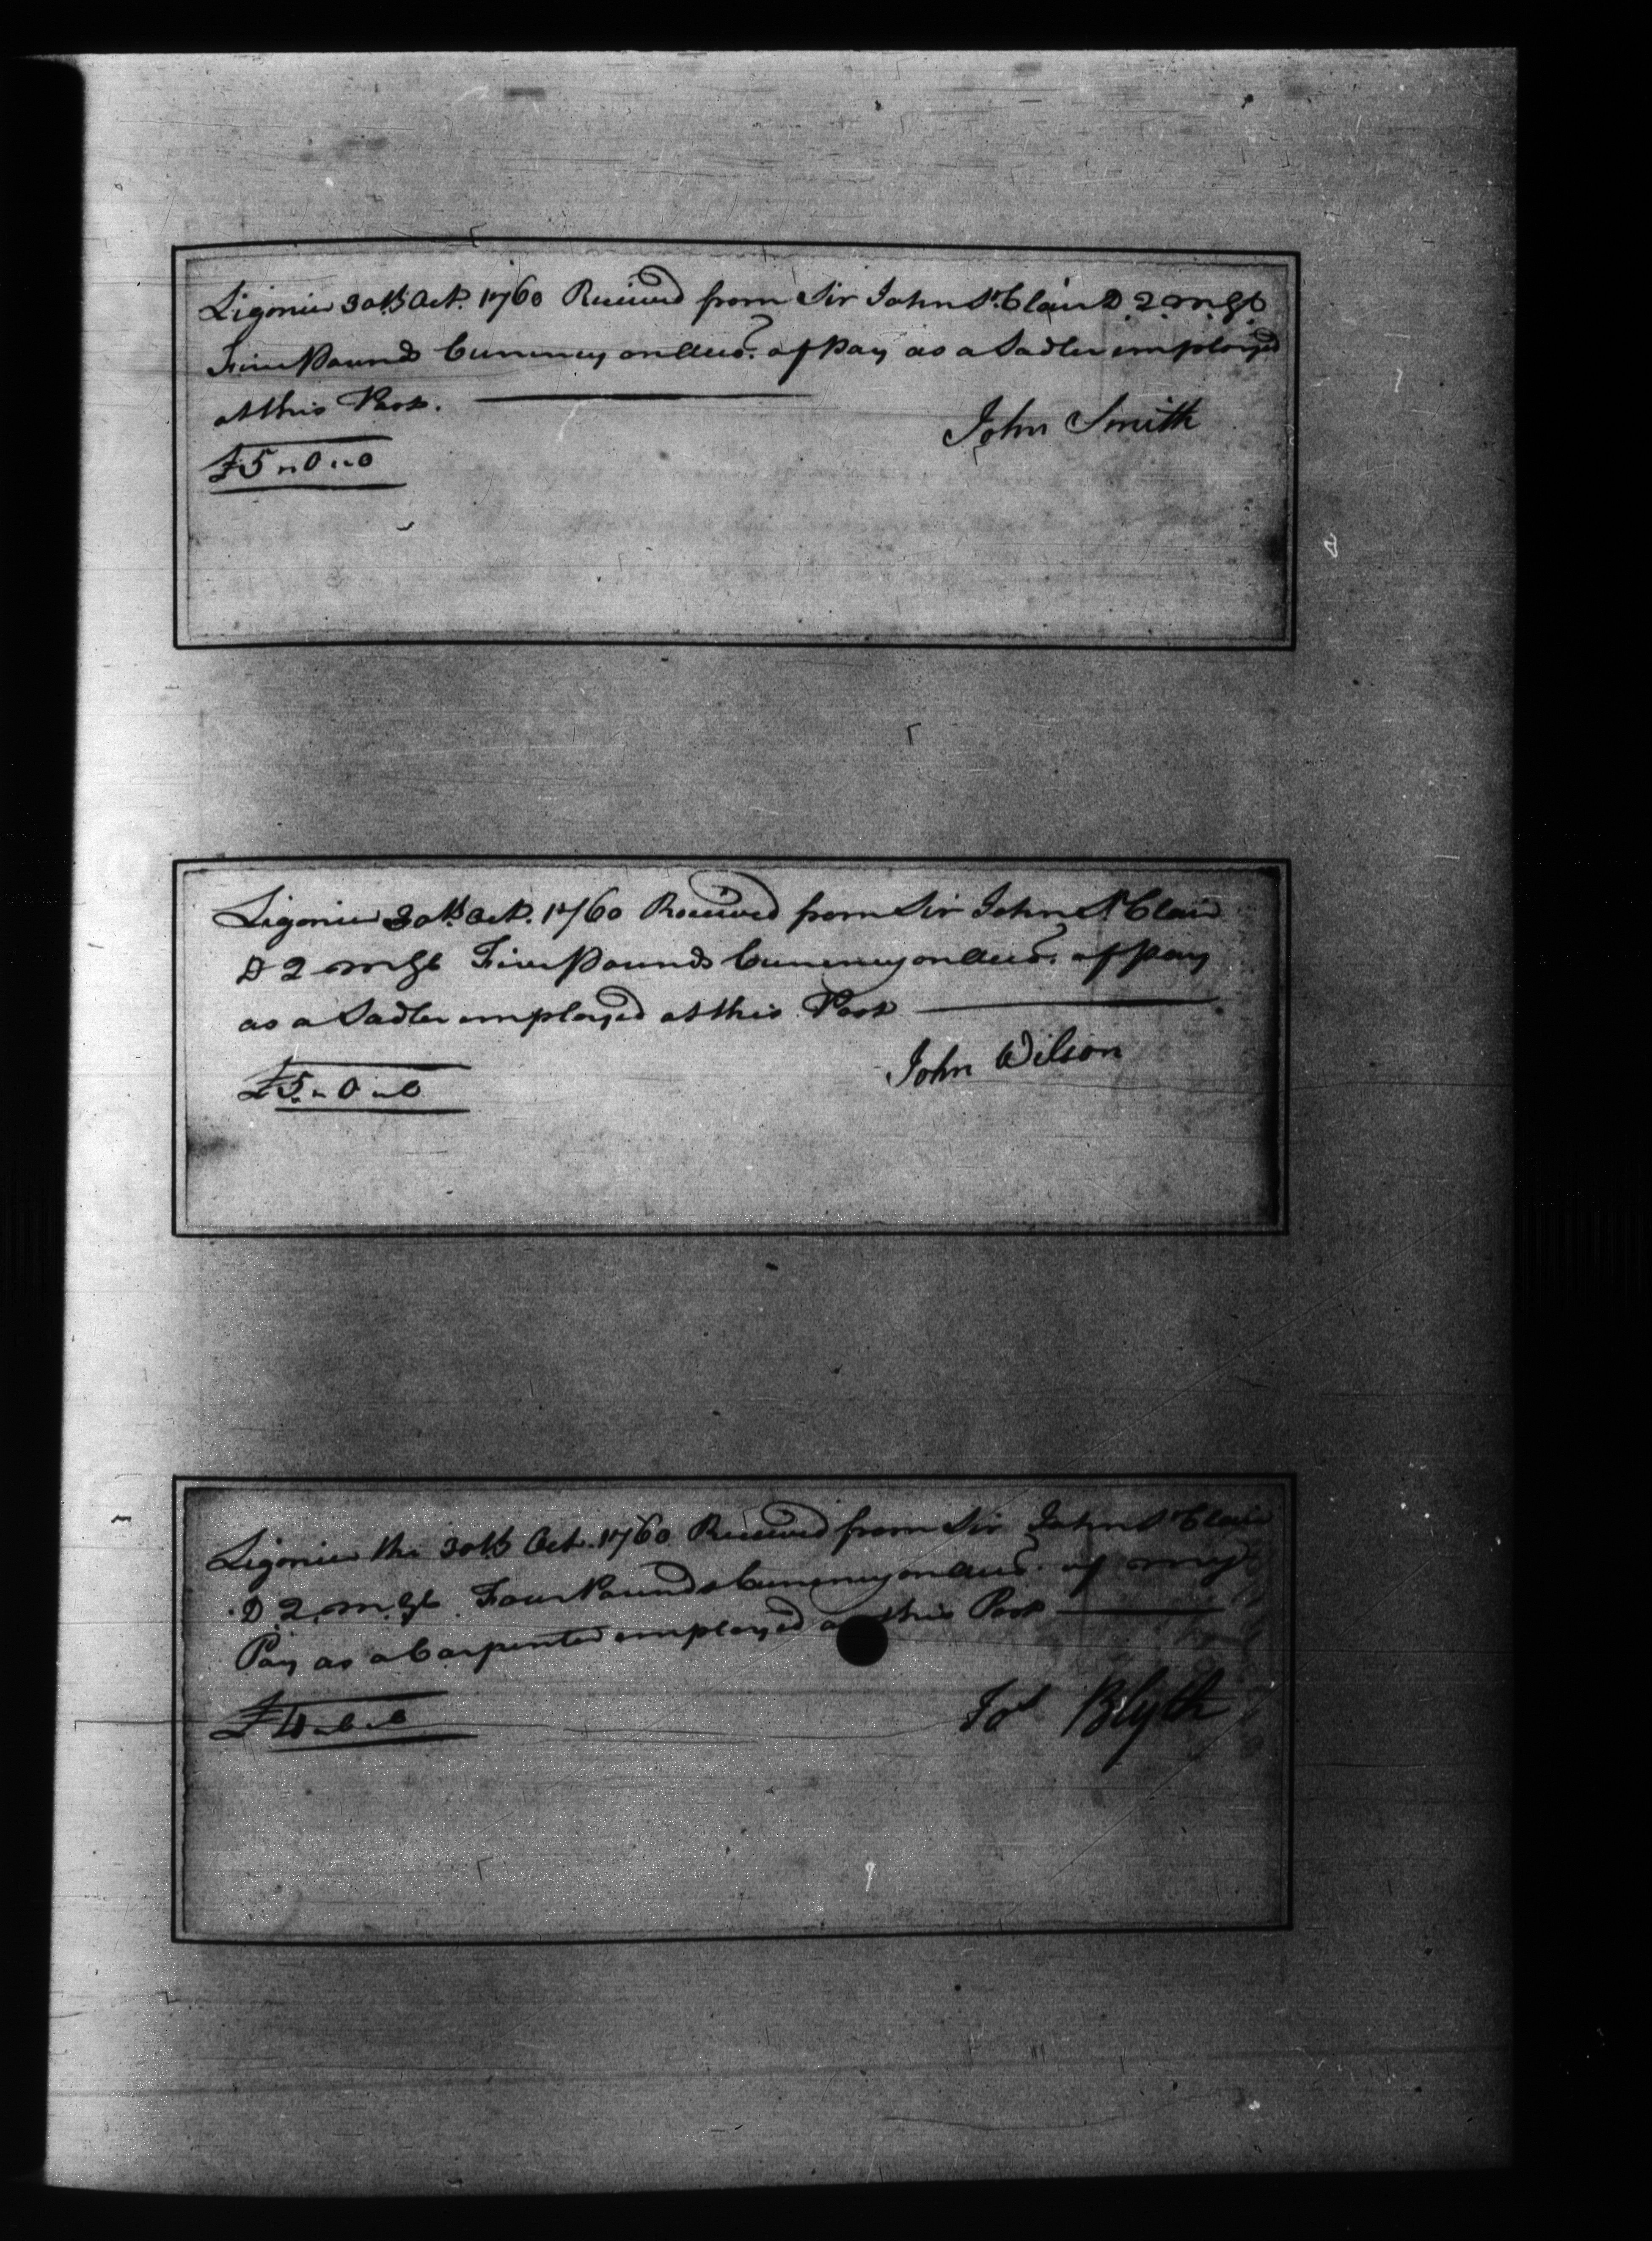 Ligonier 30th Octr. 1760 Received from Sir John St. Clair D. Q. M. Gl.
Five Pounds Currency on Acct. of Pay as a Sadler employed
at this Post.
John Smith
£5 " 0 " 0
Ligonier 30th Octr. 1760 Received from Sir John St Clair
D Q M Gl Five Pounds Currency on Acct. of Pay
as a Sadler employed at this Post
John Wilson
£5 " 0 " 0
Ligonier the 30th Oct. 1760 Received from Sir John St Clair
D. Q. M. Gl. Four Pounds Currency on Acct. of my
Pay as a Carpenter employed at this Post
Jos Blyth
£4 " 0 " 0